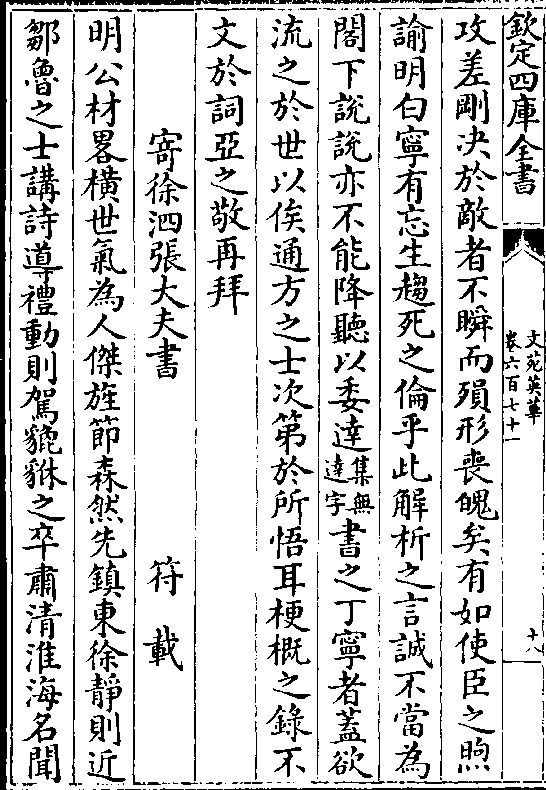 欽定四庫全書
文苑英華
卷六百七十一
十八
攻差剛决於敵者不瞬而殞形喪魄矣有如使臣之喣
諭明白寧有忘生趨死之倫乎此解析之言誠不當為
閣下說說亦不能降聽以委達集無達字書之丁寧者蓋欲
流之於世以俟通方之士次第於所悟耳梗概之錄不
文於詞亞之敬再拜
寄徐泗張大夫書
符載
明公材畧橫世氣為人傑旌節森然先鎮東徐靜則近
鄒魯之士講詩導禮動則駕貔貅之卒肅清淮海名聞